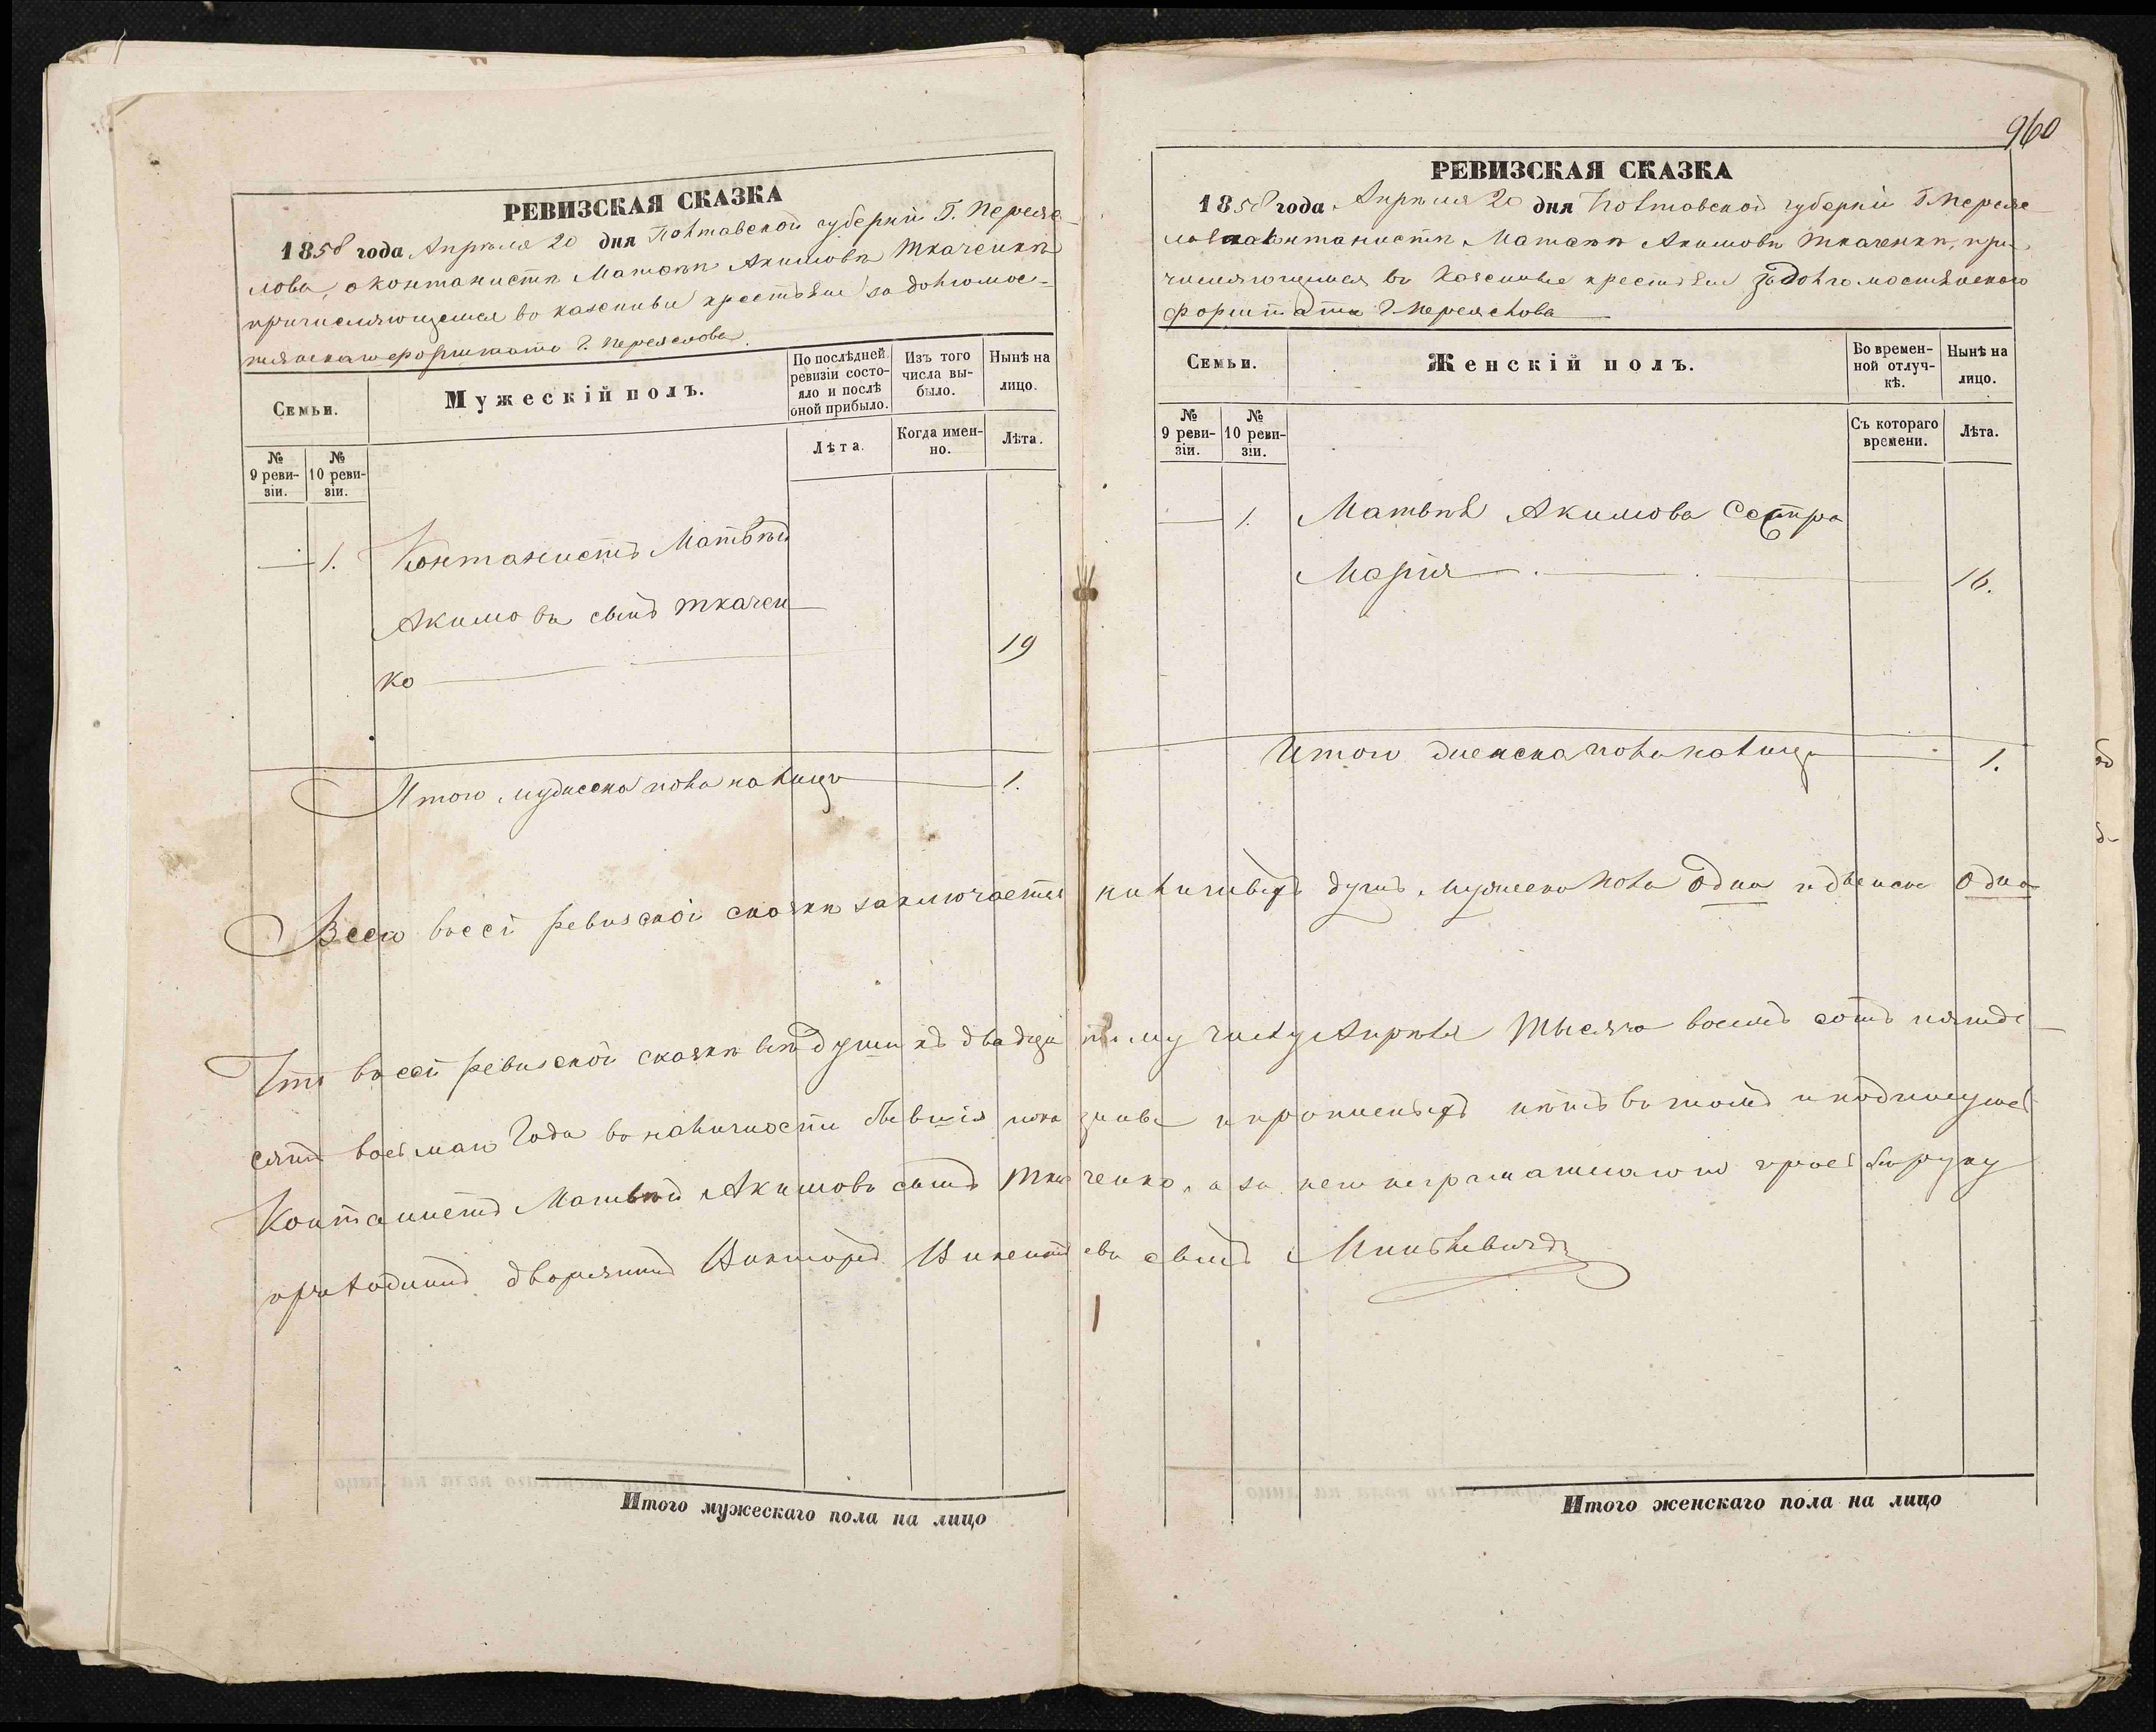 РЕВИЗСКАЯ СКАЗКА
1858 года Апрѣля 20 дня Полтавской губерніи Г. Переяс-
лова, о контанистѣ Матвѣѣ Акимовѣ Ткаченкѣ
причисляющемся въ казенные крестьяне
форштата Г. Переяслова.
Семьи.
Мужескій полъ.
По послѣдней ревизіи состо-
яло и послѣ оной прибыло.
Изъ того числа вы-
было.
Нынѣ на лицо.
№ 9 реви-
зіи.
№ 10 реви-
зіи.
Лѣта.
Когда имен-
но.
Лѣта.
1. Контанистъ Матвѣй
Акимовъ сынъ Ткачен
ко 19
Итого мужеска пола налицо 1.
Итого мужескаго пола на лицо
960
РЕВИЗСКАЯ СКАЗКА
1858 года Апрѣля 20 дня Полтавской губерніи Г. Переяс-
лова контанистѣ Матвѣѣ Акимовѣ Ткаченкѣ, при-
числяющемся въ казенные крестьяне
форштата Г. Переяслова
Семьи.
Женскій полъ.
Во времен-
ной отлуч-
кѣ.
Нынѣ на лицо.
№ 9 реви-
зіи.
№ 10 реви-
зіи.
Съ котораго времени.
Лѣта.
1. Матвѣя Акимова Сестра
Марія 16.
Итого женска пола налицо 1.
Всего въ сей ревизской сказкѣ заключается наличныхъ душъ мужеска пола одна и женска одна
Что въ сей ревизской сказкѣ всѣ души къ двадцатому числу Апрѣля тысяча восемъ сотъ пятьде-
сятъ восьмаго года въ наличности бывшія показаны и прописныхъ нѣтъ въ томъ и подписуюсь
Контанистъ Матвѣй Акимовъ сынъ Ткаченко, а за неграматнаго
дворянинъ Викторъ сынъ
Итого женскаго пола на лицо